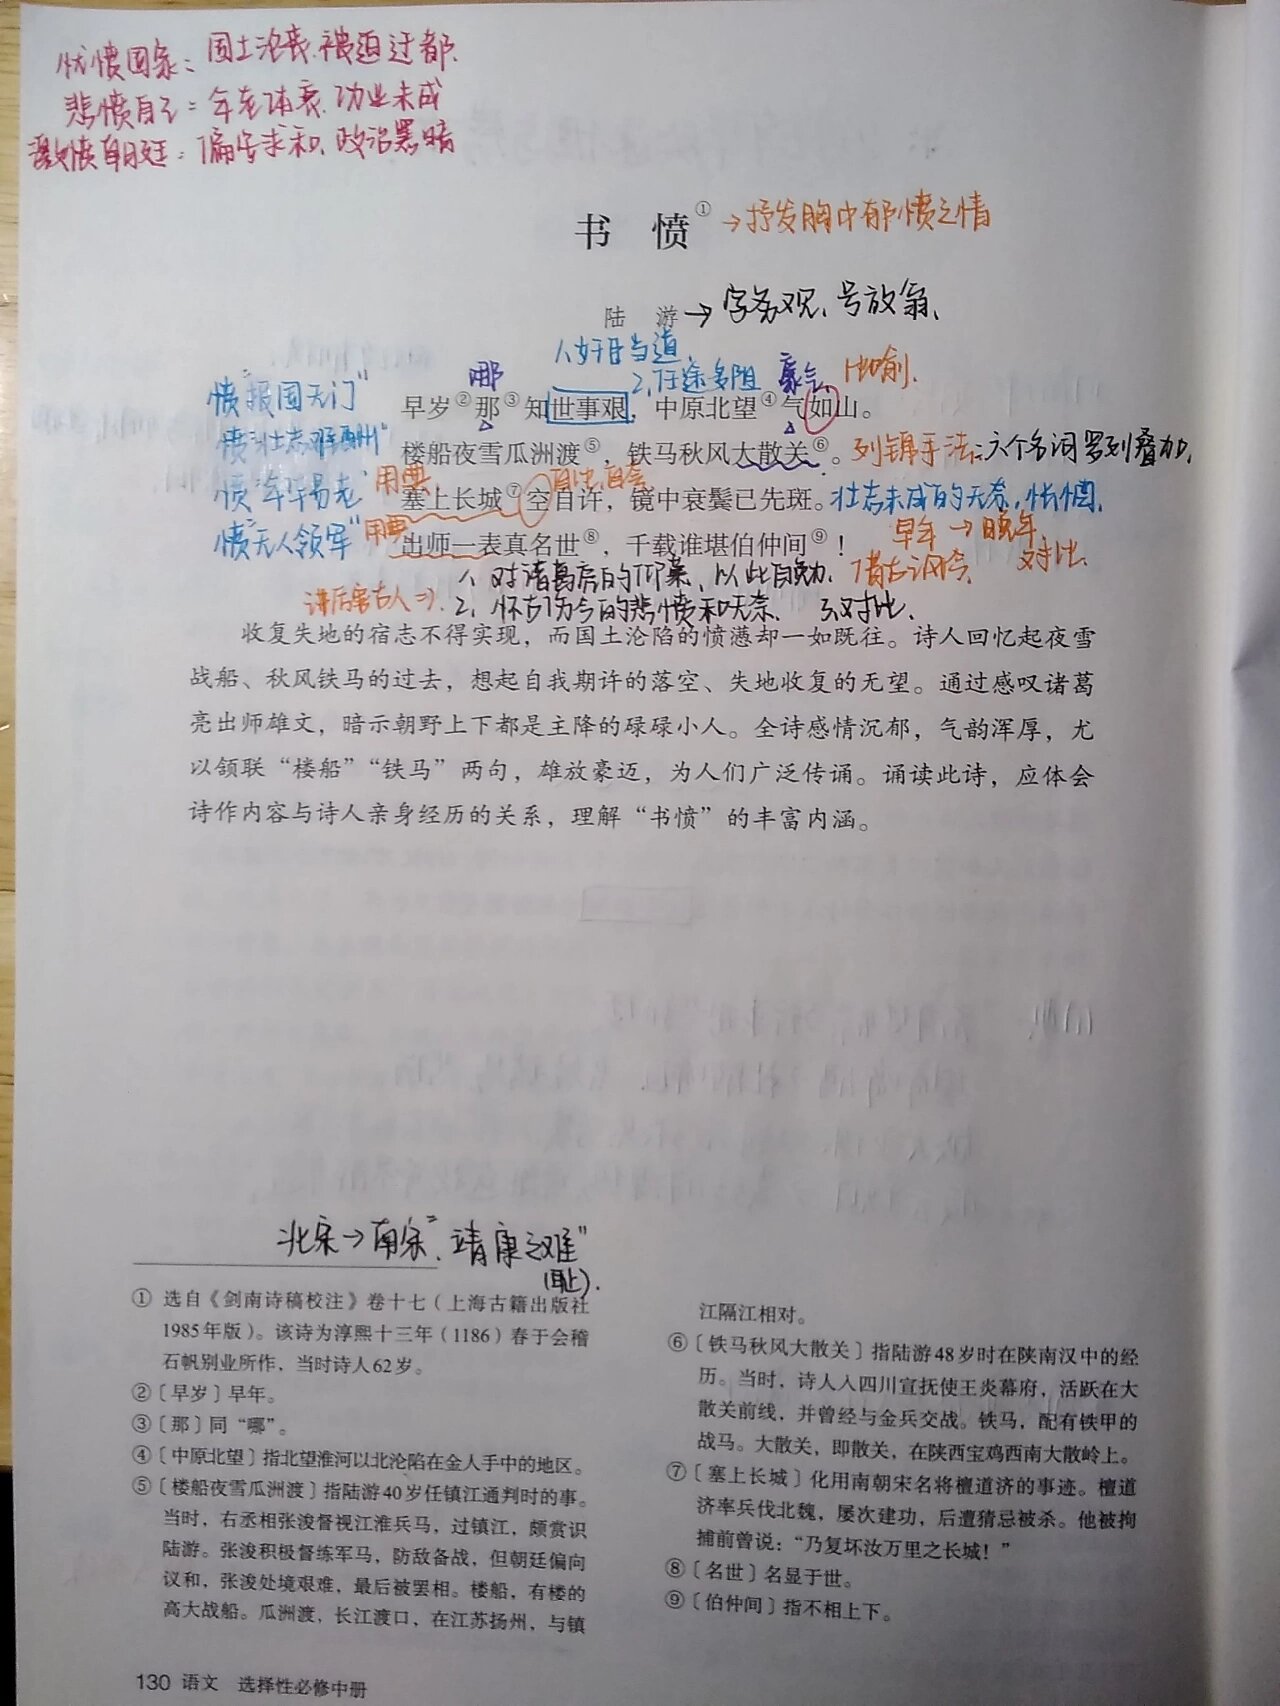 忧愤国家：国土沦丧、被迫迁都、
悲愤自己：年老体衰、功业未成
激愤朝廷：偏安求和、政治黑暗
书 愤①→抒发胸中郁愤之情
陆 游→字务观、号放翁、
1、奸臣当道、
2、仕途多阻
哪
豪气、比喻、
愤"报国无门"
早岁②那③知世事艰，中原北望④气如山。
愤"壮志难酬"
楼船夜雪瓜洲渡⑤，铁马秋风大散关⑥。列锦手法：六个名词罗列叠加、
愤"年华易老"用典
塞上长城⑦空自许，镜中衰鬓已先斑。壮志未成的无奈，怅惘、
愤"无人领军"用典
早年→晚年
对比
出师一表真名世⑧，千载谁堪伯仲间⑨！
借古讽今、
1、对诸葛亮的仰慕、以此自勉、
2、怀古伤今的悲愤和无奈、 3、对比、
收复失地的宿志不得实现，而国土沦陷的愤懑却一如既往。诗人回忆起夜雪
战船、秋风铁马的过去，想起自我期许的落空、失地收复的无望。通过感叹诸葛
亮出师雄文，暗示朝野上下都是主降的碌碌小人。全诗感情沉郁，气韵浑厚，尤
以颔联“楼船”“铁马”两句，雄放豪迈，为人们广泛传诵。诵读此诗，应体会
诗作内容与诗人亲身经历的关系，理解“书愤”的丰富内涵。
北宋→南宋、"靖康之难"
(耻)、
① 选自《剑南诗稿校注》卷十七（上海古籍出版社
1985年版）。该诗为淳熙十三年（1186）春于会稽
石帆别业所作，当时诗人62岁。
②〔早岁〕早年。
③〔那〕同“哪”。
④〔中原北望〕指北望淮河以北沦陷在金人手中的地区。
⑤〔楼船夜雪瓜洲渡〕指陆游40岁任镇江通判时的事。
当时，右丞相张浚督视江淮兵马，过镇江，颇赏识
陆游。张浚积极督练军马，防敌备战，但朝廷偏向
议和，张浚处境艰难，最后被罢相。楼船，有楼的
高大战船。瓜洲渡，长江渡口，在江苏扬州，与镇
江隔江相对。
⑥〔铁马秋风大散关〕指陆游48岁时在陕南汉中的经
历。当时，诗人入四川宣抚使王炎幕府，活跃在大
散关前线，并曾经与金兵交战。铁马，配有铁甲的
战马。大散关，即散关，在陕西宝鸡西南大散岭上。
⑦〔塞上长城〕化用南朝宋名将檀道济的事迹。檀道
济率兵伐北魏，屡次建功，后遭猜忌被杀。他被拘
捕前曾说：“乃复坏汝万里之长城！”
⑧〔名世〕名显于世。
⑨〔伯仲间〕指不相上下。
130 语文 选择性必修中册